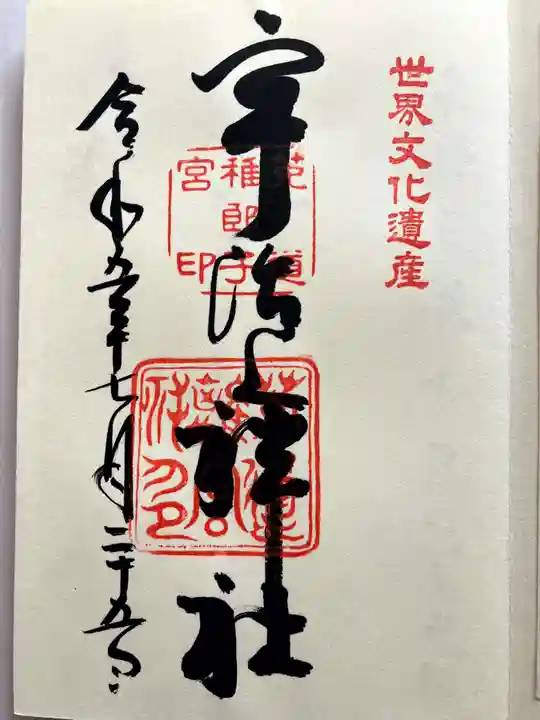 世界文化遺産
宇治上神社
菟道
稚郎子
宮印
令和五年七月二十五日